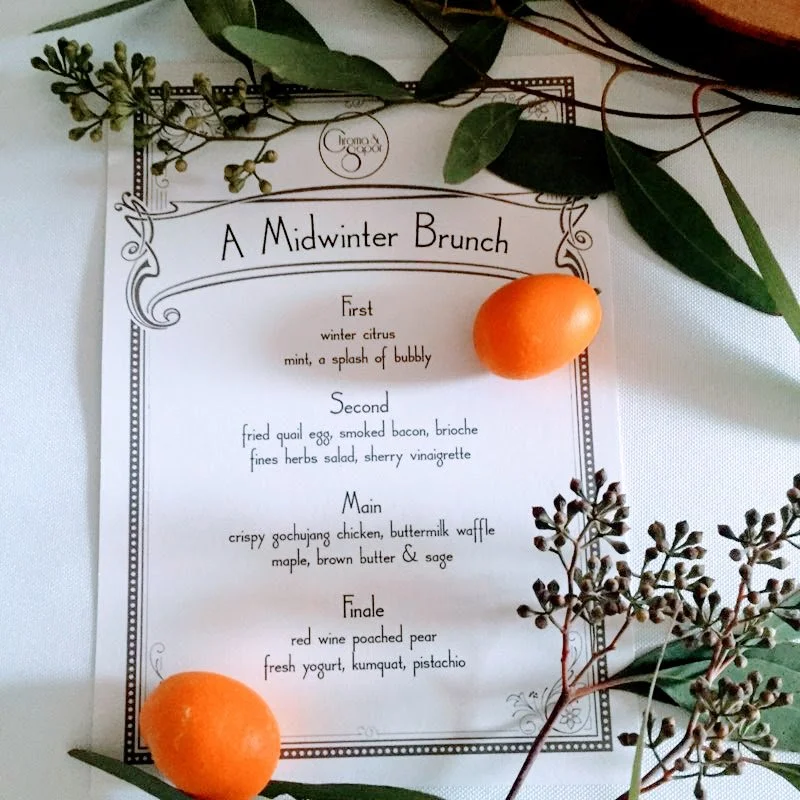 Chroma &
Sapor
A Midwinter Brunch
First
winter citrus
mint, a splash of bubbly
Second
fried quail egg, smoked bacon, brioche
fines herbs salad, sherry vinaigrette
Main
crispy gochujang chicken, buttermilk waffle
maple, brown butter & sage
Finale
red wine poached pear
fresh yogurt, kumquat, pistachio